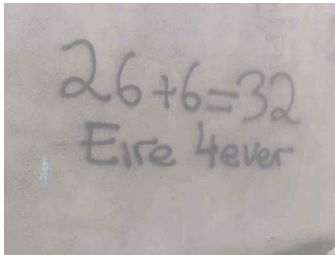 26+6=32
Eire 4ever